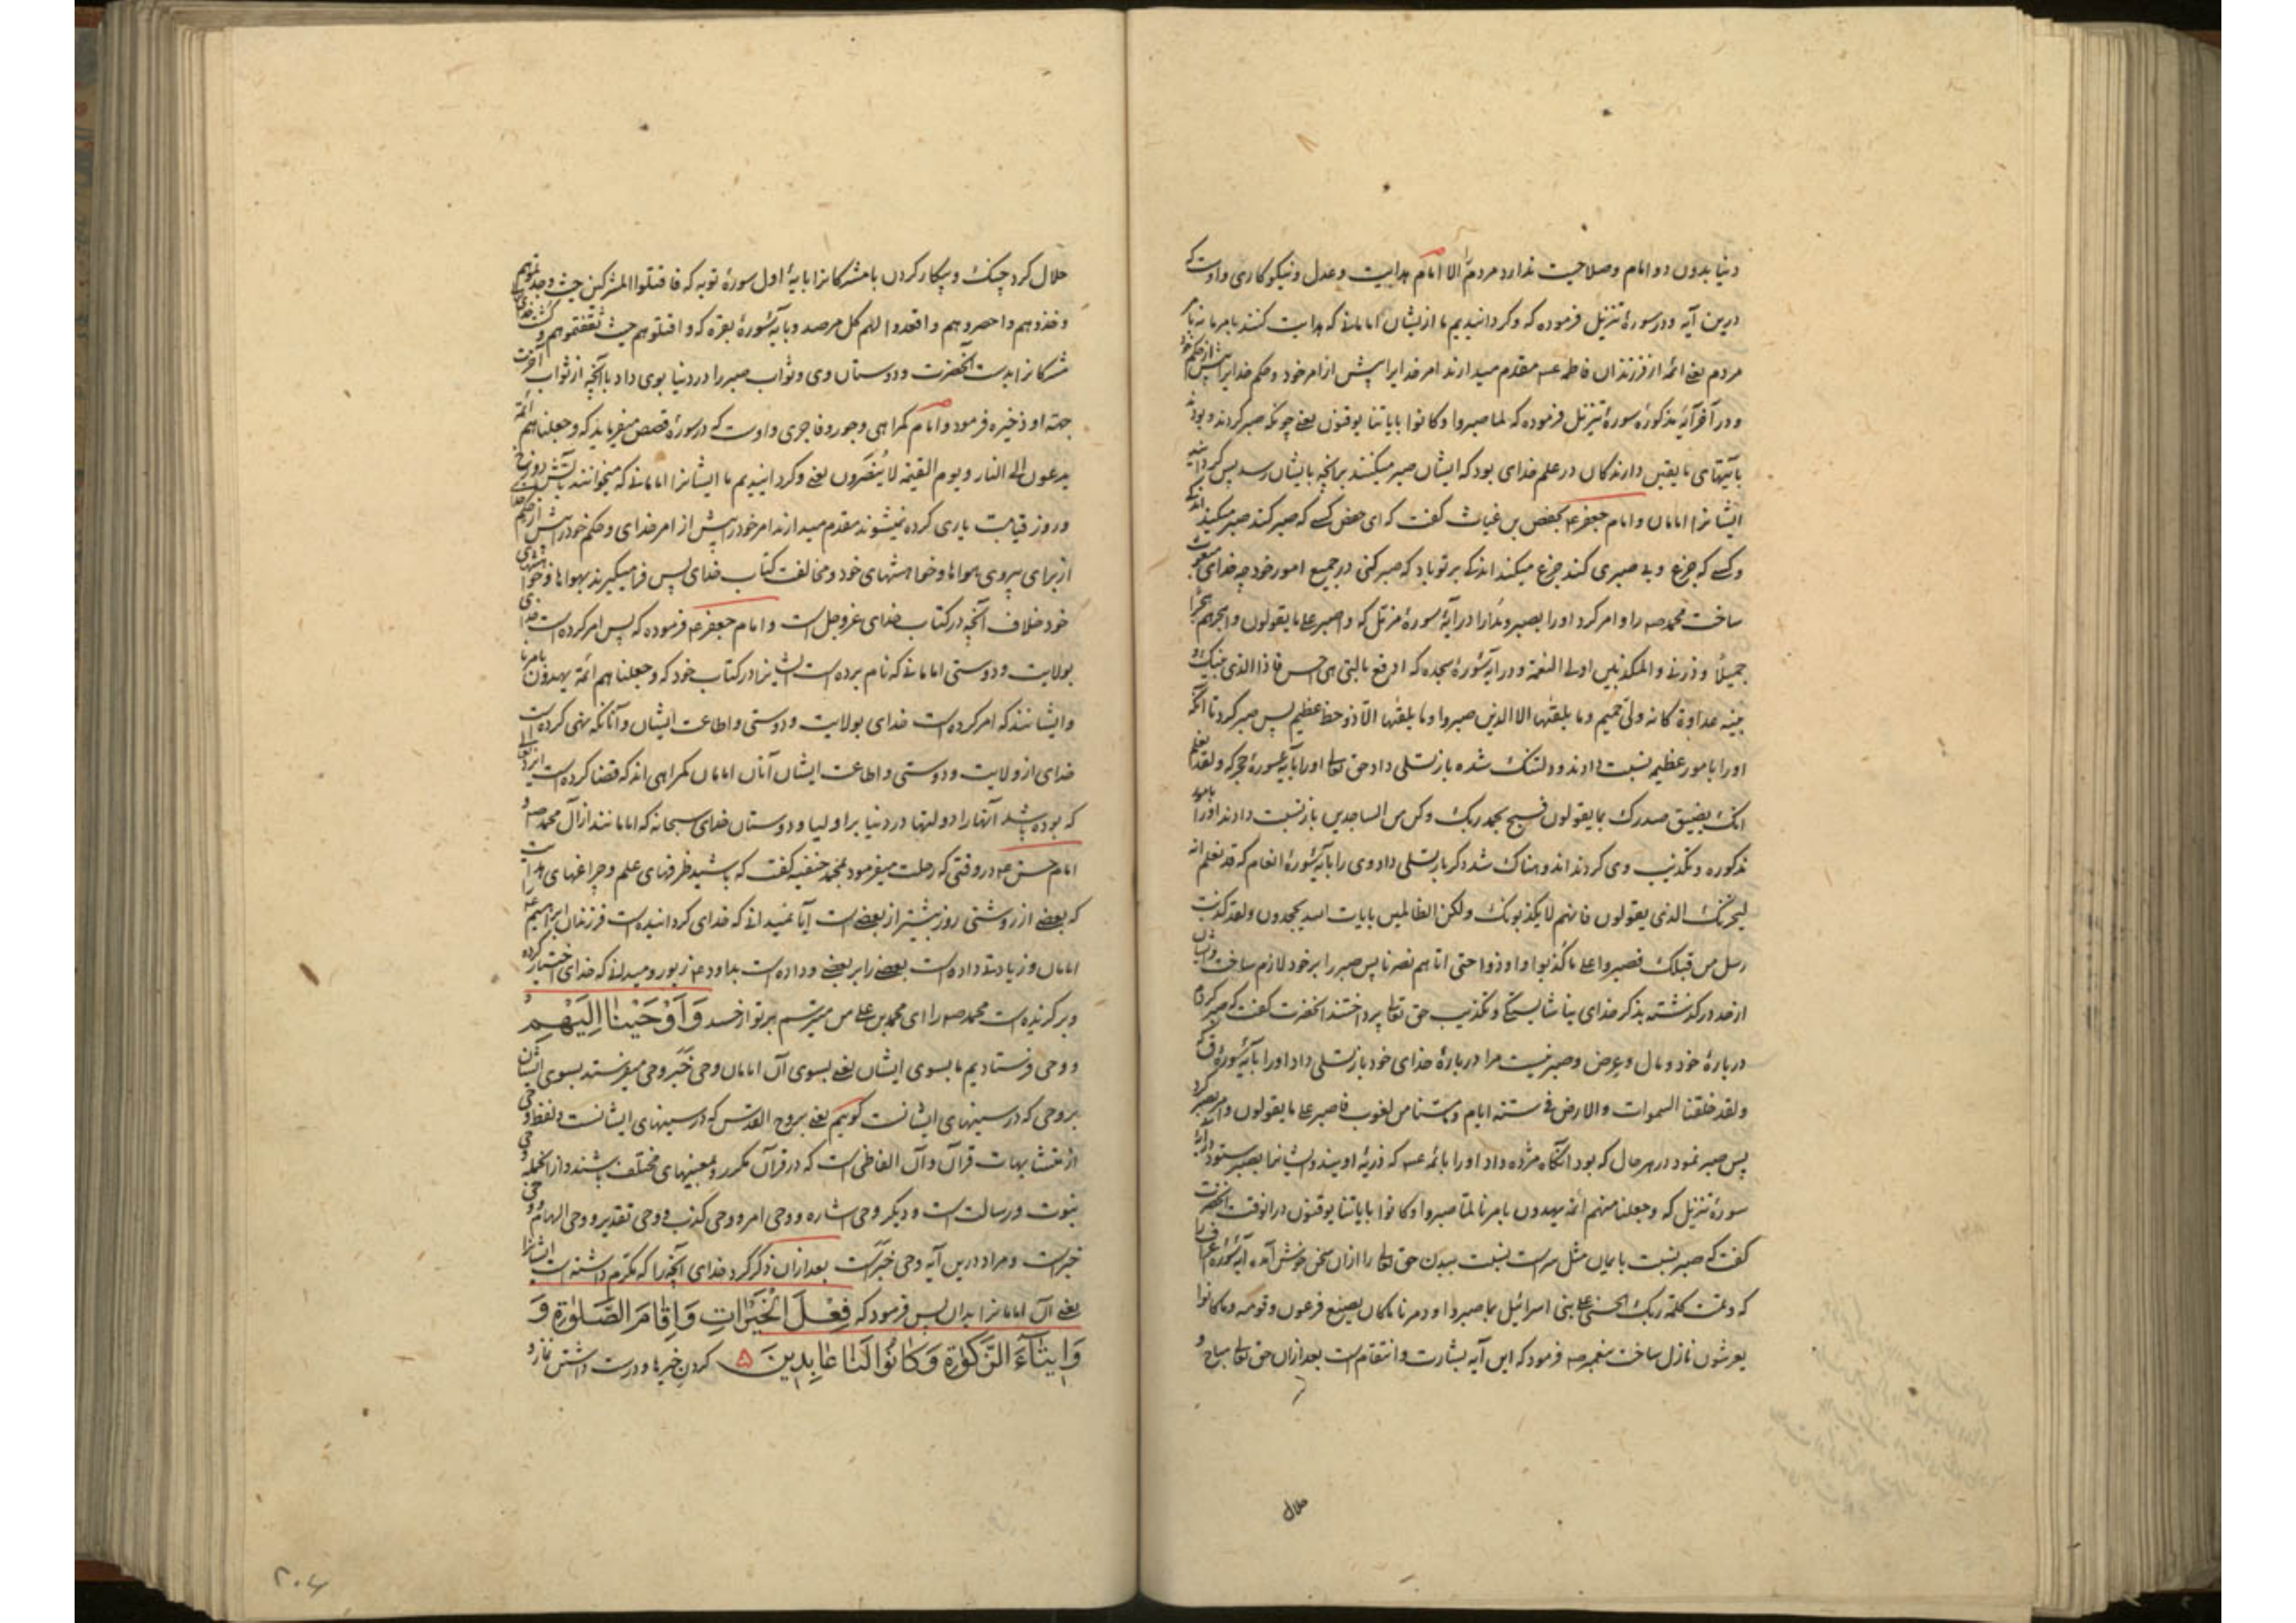 دنیا بدون دو امام وصلاحیت ندارد مردم را الا امام هدایت وعدل ونیکوکاری واوست که
درین آیه ودر سورهٔ تنزیل فرموده که وکردانیدیم ما ازیشان امامانی که هدایت کنند بامر ما نه بامر
مردم یعنی ائمه از فرزندان فاطمه عـ مقدم میدارند امر خدایرا پیش از امر خود وحکم خدایرا پیش از حکم خود
ودر آخر آیهٔ مذکورهٔ سورهٔ تنزیل فرموده که لما صبروا وکانوا بایاتنا یوقنون یعنی چونکه صبر کردند وبودند
بآیتهای ما یقین دارندکان در علم خدای بود که ایشان صبر میکنند برانچه بایشان رسد پس کردانید
ایشانرا امامان وامام جعفر عـ بحفص بن غیاث کفت که ای حفص کسی که صبر کند صبر میکند اندکی
وکسی که جزع وبی صبری کند جزع میکند اندکی بر تو باد که صبر کنی در جمیع امور خود چه خدای مبعوث
ساخت محمد صـ را وامر کرد اورا بصبر ومدارا در آیهٔ سورهٔ مزمل که واصبر علی ما یقولون واهجرهم هجرا
جمیلاً وذرنی والمکذبین اولی النعمة ودر آیهٔ سورهٔ سجده که ادفع بالتی هی احسن فاذا الذی بینک و
بینه عداوة کانه ولی حمیم وما یلقیها الا الذین صبروا وما یلقیها الا ذو حظ عظیم پس صبر کرد تا آنکه
اورا بامور عظیم نسبت دادند ودلتنک شده باز تسلی داد حق تعالی اورا بآیهٔ سورهٔ حجر که ولقد نعلم
انک یضیق صدرک بما یقولون فسبح بحمد ربک وکن من الساجدین باز نسبت دادند اورا بامور
مذکوره وتکذیب وی کردند اندوهناک شد دکر بار تسلی داد وی را بآیهٔ سورهٔ انعام که قد نعلم انه
لیحزنک الذی یقولون فانهم لا یکذبونک ولکن الظالمین بایات الله یجحدون ولقد کذبت
رسل من قبلک فصبروا علی ما کذبوا واوذوا حتی اتاهم نصرنا پس صبر را بر خود لازم ساخت وایشان
از حد درکذشته بذکر خدای بناشایستکی وتکذیب حق تعالی پرداختند آنحضرت کفت که صبر کردم
دربارهٔ خود ومال وعرض وصبر نیست مرا دربارهٔ خدای خود باز تسلی داد اورا بآیهٔ سورهٔ ق که
ولقد خلقنا السموات والارض فی ستة ایام وما مسنا من لغوب فاصبر علی ما یقولون وامر بصبر کرد
پس صبر نمود در هر حال که بود آنکاه مژده داد اورا بائمه عـ که ذریهٔ اویند وایشانرا بصبر ستود در آیهٔ
سورهٔ تنزیل که وجعلنا منهم ائمة یهدون بامرنا لما صبروا وکانوا بایاتنا یوقنون در انوقت آنحضرت
کفت که صبر نسبت بایمان مثل سر است نسبت ببدن حق تعالی را ازان سخن خوش آمده آیهٔ سورهٔ اعراف را
که وتمت کلمة ربک الحسنی علی بنی اسرائیل بما صبروا ودمرنا ما کان یصنع فرعون وقومه وما کانوا
یعرشون نازل ساخت پیغمبر صـ فرمود که این آیه بشارت وانتقام است بعد ازان حق تعالی مباح و
حلال
حلال کرد جنک وپیکار کردن با مشرکانرا بآیهٔ اول سورهٔ توبه که فاقتلوا المشرکین حیث وجدتموهم
وخذوهم واحصروهم واقعدوا لهم کل مرصد وبآیهٔ سورهٔ بقره که واقتلوهم حیث ثقفتموهم وکشت خدای
مشرکانرا بدست آنحضرت ودوستان وی وثواب صبر را در دنیا بوی داد با آنچه از ثواب آخرت
جهة او ذخیره فرمود وامام کمراهی وجور وفاجری واوست که در سورهٔ قصص میفرماید که وجعلناهم ائمة
یدعون الی النار ویوم القیمة لا ینصرون یعنی وکردانیدیم ما ایشانرا امامانی که میخوانند بآتش دوزخ
وروز قیامت یاری کرده نمیشوند مقدم میدارند امر خود را پیش از امر خدای وحکم خود را پیش از حکم خدا
از برای پیروی هواها وخواهشهای خود ومخالفت کتاب خدای پس فرا میکیرند بهواها وخواهشهای
خود خلاف آنچه در کتاب خدای عزوجل است وامام جعفر عـ فرموده که پس امر کرده است خدای
بولایت ودوستی امامانی که نام برده است ایشانرا در کتاب خود که وجعلناهم ائمة یهدون بامرنا
وایشانند که امر کرده است خدای بولایت ودوستی واطاعت ایشان وآنانکه نهی کرده است
خدای از ولایت ودوستی واطاعت ایشان آنان امامان کمراهی اند که قضا کرده است ایزد تعالی
که بوده باشد آنها را دولتها در دنیا بر اولیا ودوستان خدای سبحانه که امامانند از آل محمد صـ و
امام حسن عـ در وقتی که رحلت میفرمود بمحمد حنفیه کفت که باشید ظرفهای علم وچراغهای هدایت را
که بعضی از روشنی روز بیشتر از بعضی است آیا نمیدانی که خدای کردانیده است فرزندان ابراهیم عـ
امامان وزیادتی داده است بعضی را بر بعضی وداده است بداود عـ زبور ومیدانی که خدای اختیار کرده
وبرکزیده است محمد صـ را ای محمد بن علی من میترسم بر تو از حسد وَاَوْحَیْنٰا اِلَیْهِمْ
ووحی فرستادیم ما بسوی ایشان یعنی بسوی آن امامان وحی خبر وحی میفرستند بسوی ایشان
بروحی که در سینهای ایشانست کوییم یعنی بروح القدس که در سینهای ایشانست ولفظ وحی
از متشابهات قرآن وآن الفاظی است که در قرآن مکرر وبمعنیهای مختلف باشند وازانجمله وحی
نبوت ورسالت است ودیکر وحی اشاره ووحی امر ووحی کذب ووحی تقدیر ووحی الهام ووحی
خبر است ومراد درین آیه وحی خبر است بعد ازان ذکر کرد خدای آنچه را که مکرم داشته است ایشانرا
یعنی آن امامانرا بدان پس فرمود که فِعْلَ الْخَیْرٰاتِ وَاِقٰامَ الصَّلٰوةِ وَ
وَاِیتٰآءَ الزَّکٰوةِ وَکٰانُوا لَنٰا عٰابِدِینَ ۵ کردن خیرها ودرست داشتن نماز و